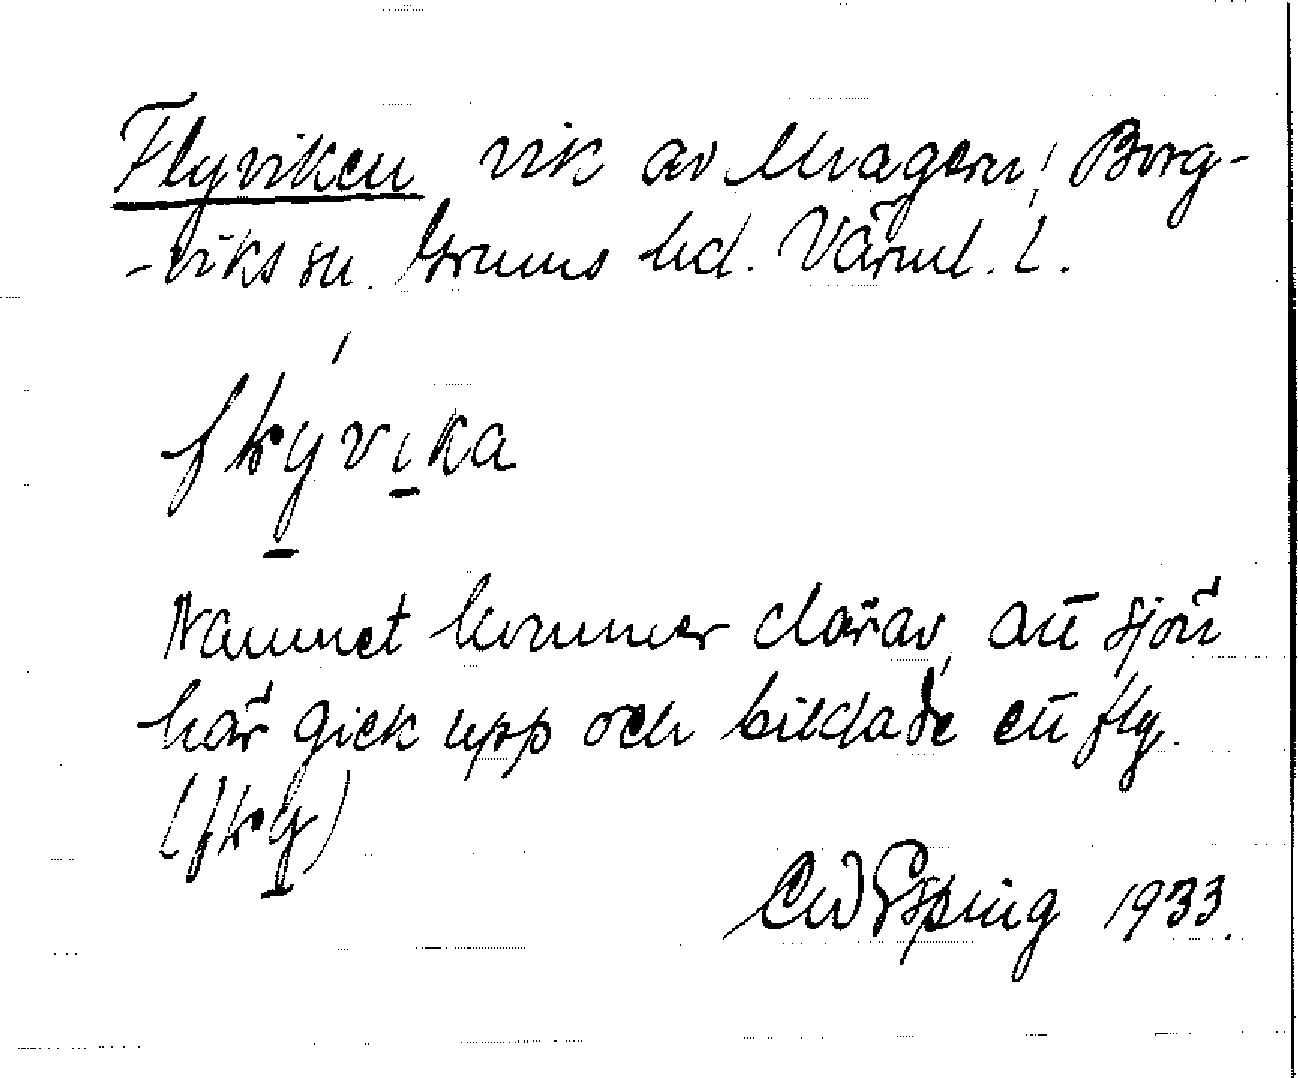 Flyviken vik av Mragern, Borg-
-viks sn. Grums hd. Värml. l.
fḷyvika
Namnet kommer därav, att sjön
här gick upp och bildade ett fly.
(fḷy)
CW Esping 1933.